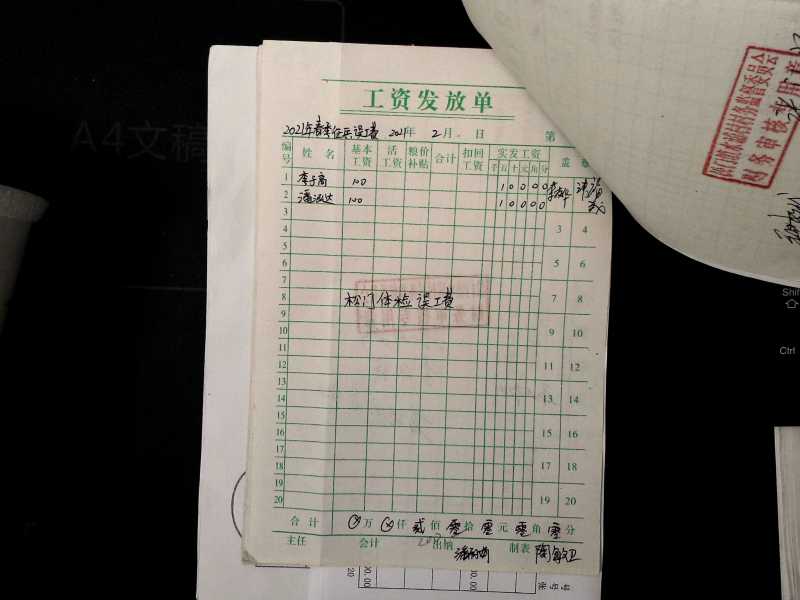 A4文稿
工资发放单
2021年春季征兵误工费 2021年 2月 日 第
编号 姓名 基本工资 活工资 粮价补贴 合计 扣回工资 实发工资 盖
千 百 十 元 角 分
1 李子高 100 10000
2 潘泓达 100 10000
3 3 4
4
5 5 6
6
7
8 松门体检误工费 7 8
9
10 9 10
11
12 11 12
13
14 13 14
15
16 15 16
17
18 17 18
19
20 19 20
合计 万 仟 贰佰 零拾 零元 零角 零分
主任 会计 出纳 制表 陶敏卫
财务审核
Shif
Ctrl